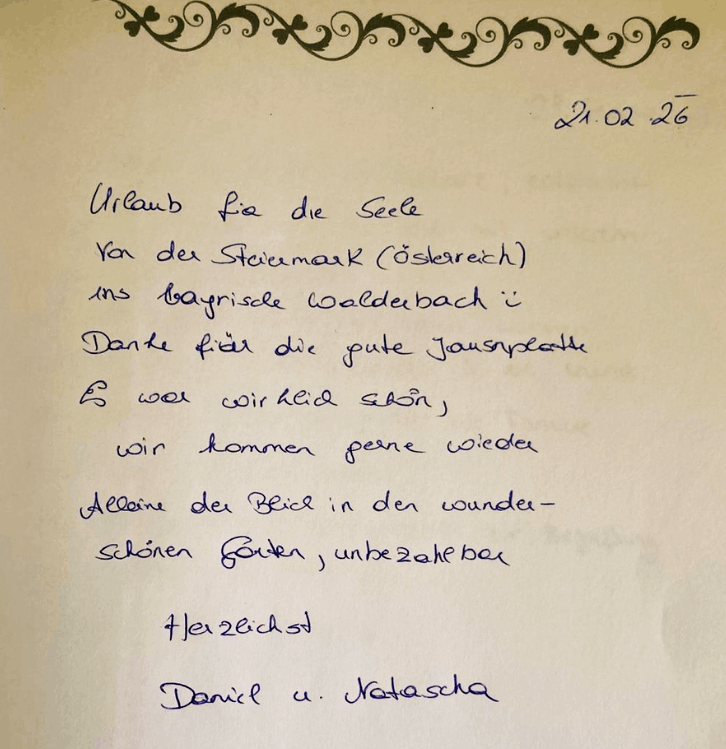 21.02.26
Urlaub für die Seele
Von der Steiermark (Österreich)
ins bayrische Walderbach ü
Danke für die gute Jausnplatte
Es war wirklich schön,
wir kommen gerne wieder
Alleine der Blick in den wunder-
schönen Garten, unbezahlbar
Herzlichst
Daniel u. Natascha